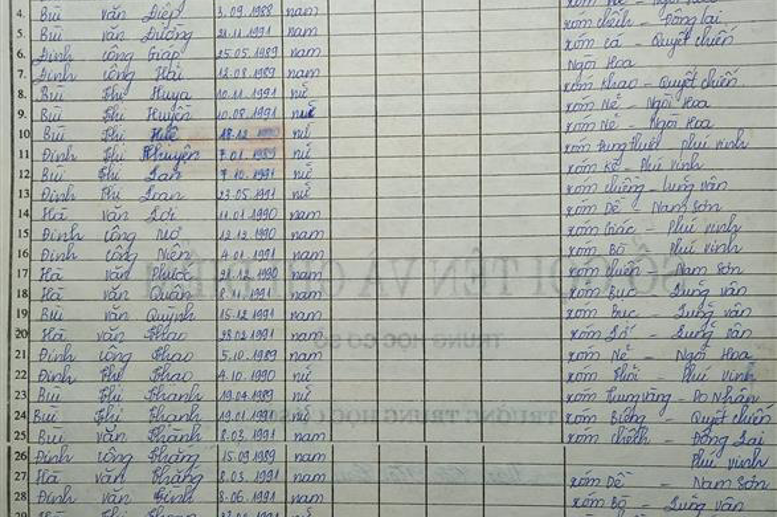 4. Bùi văn Điệp 3.09.1988 nam
5. Bùi văn Đường 21.11.1991 nam xóm chếch - Đông lai
6. Đinh công Giáp 25.05.1989 nam xóm cá - Quyết chiến
7. Đinh công Hải 12.08.1989 nam Ngòi Hoa
8. Bùi thị 10.11.1991 nữ xóm khao - Quyết chiến
9. Bùi thị Huyền 10.08.1991 nữ xóm Nẻ - Ngòi Hoa
10 Bùi thị 18.12.1990 nữ xóm Nẻ - Ngòi Hoa
11 Đinh thị Khuyên 7.01.1989 nữ xóm phú vinh
12 Bùi thị Lan 7.10.1991 nữ xóm Kè - Phú vinh
13 Đinh thị Loan 23.05.1991 nữ xóm chiềng - Lũng vân
14 Hà văn Lới 11.01.1990 nam xóm Dề - Nam Sơn
15 Đinh công Mơ 12.12.1990 nam xóm Giác - Phú vinh
16 Đinh công Niên 4.01.1991 nam xóm Bô - Phú vinh
17 Hà văn Phước 21.12.1990 nam xóm chiến - Nam Sơn
18 Hà văn Quân 8.11.1991 nam xóm Bục - Lũng vân
19 Bùi văn Quỳnh 15.12.1991 nam xóm Bục - Lũng vân
20 Hà văn Thao 28.02.1991 nam xóm - Lũng vân
21 Đinh công Thao 5.10.1989 nam xóm Nẻ - Ngòi Hoa
22 Đinh thị Thao 4.10.1990 nữ xóm Thỏi - Phú vinh
23 Bùi thị Thanh 19.04.1989 nữ xóm Do Nhân
24 Bùi thị Thanh 19.01.1991 nữ xóm Biêng - Quyết chiến
25 Bùi văn Thành 8.03.1991 nam xóm chếch - Đông Lai
26 Đinh công Thắng 15.09.1989 nam Phú vinh
27 Hà văn Thắng 8.03.1991 nam xóm Dề - Nam Sơn
28 Đinh văn Thính 8.06.1991 nam xóm Bô - Lũng vân
SỔ GỌI TÊN VÀ GHI ĐIỂM
TRUNG HỌC CƠ SỞ
TRƯỜNG TRUNG HỌC CƠ SỞ